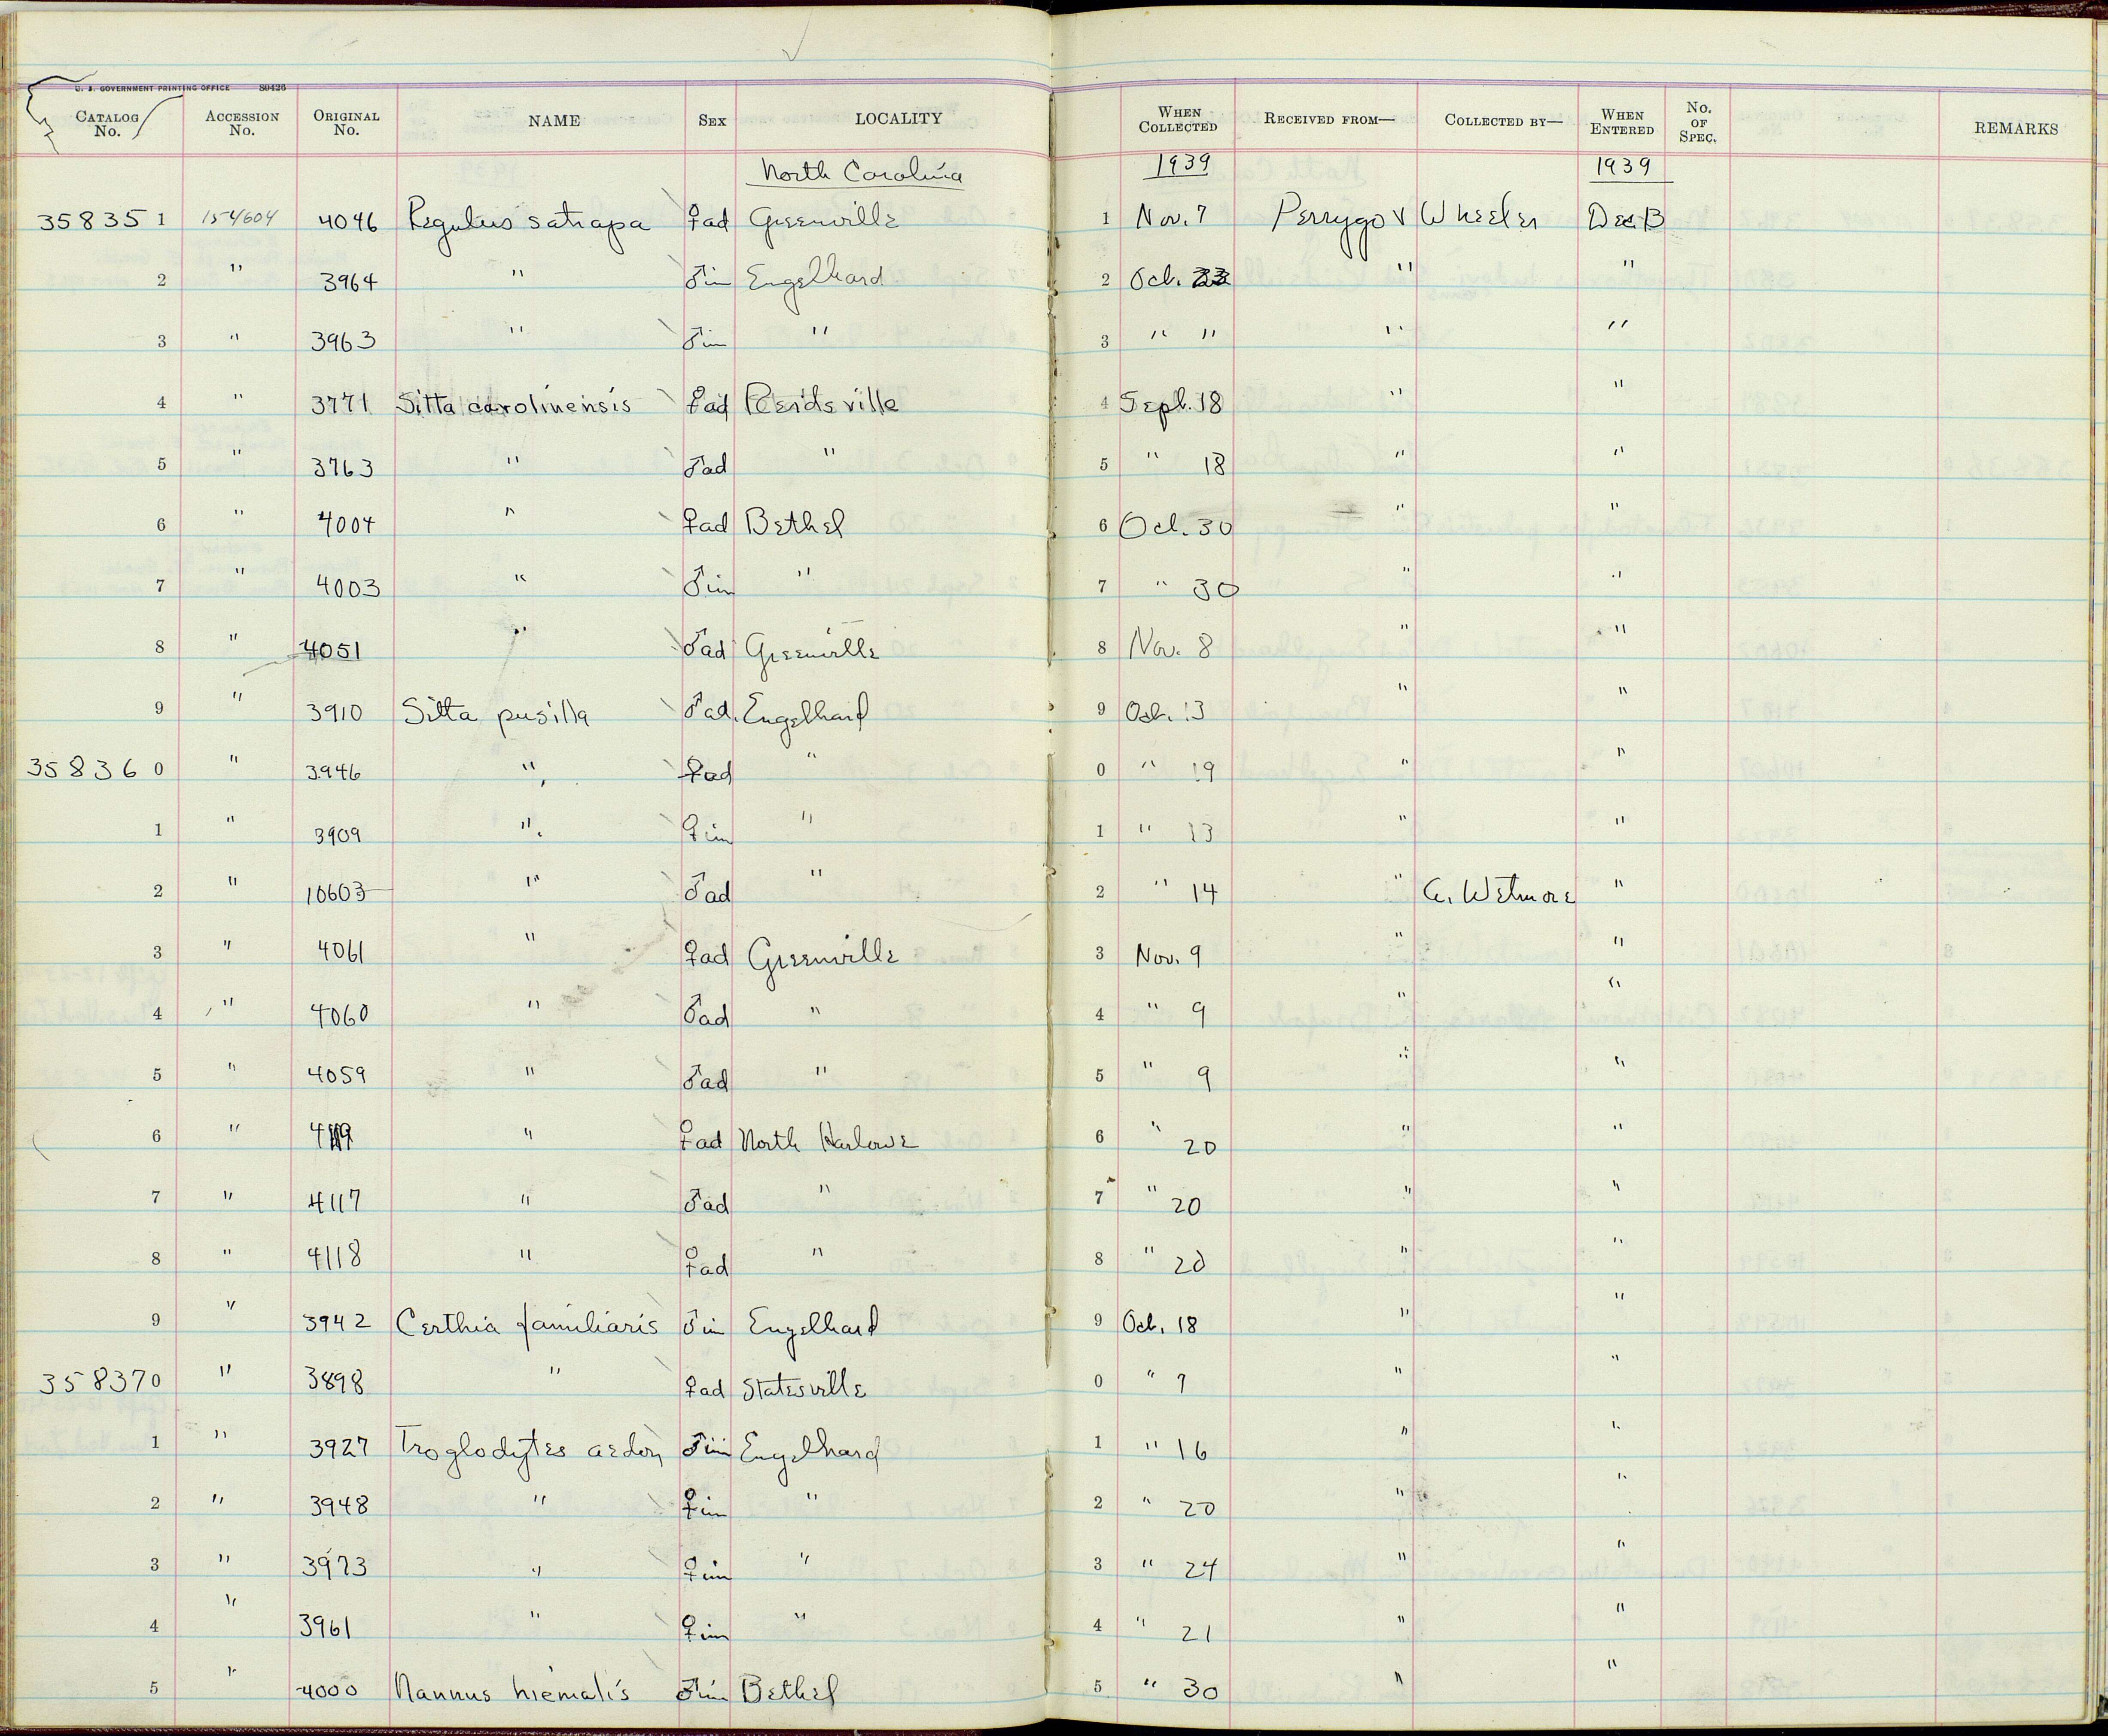 U. S. GOVERNMENT PRINTING OFFICE 80426
CATALOG No. ACCESSION No. ORIGINAL No. NAME SEX LOCALITY WHEN COLLECTED RECEIVED FROM— COLLECTED BY— WHEN ENTERED No. OF SPEC. REMARKS
North Carolina 1939 1939
35835 1 154604 4046 Regulus satrapa ♀ad Greenville 1 Nov. 7 Perrygo & Wheeler Dec 13
2 " 3964 " ♂im Engelhard 2 Oct. 23 " "
3 " 3963 " ♂im " 3 " " " "
4 " 3771 Sitta carolinensis ♀ad Reidsville 4 Sept. 18 " "
5 " 3763 " ♂ad " 5 " 18 " "
6 " 4004 " ♀ad Bethel 6 Oct. 30 " "
7 " 4003 " ♂im " 7 " 30 " "
8 " 4051 " ♂ad Greenville 8 Nov. 8 " "
9 " 3910 Sitta pusilla ♂ad. Engelhard 9 Oct. 13 " "
35836 0 " 3946 " ♀ad " 0 " 19 " "
1 " 3909 " ♀im " 1 " 13 " "
2 " 10603 " ♂ad " 2 " 14 " A. Wetmore "
3 " 4061 " ♀ad Greenville 3 Nov. 9 " "
4 " 4060 " ♂ad " 4 " 9 " "
5 " 4059 " ♂ad " 5 " 9 " "
6 " 4119 " ♀ad North Harlowe 6 " 20 " "
7 " 4117 " ♂ad " 7 " 20 " "
8 " 4118 " ♀ad " 8 " 20 " "
9 " 3942 Certhia familiaris ♂im Engelhard 9 Oct. 18 " "
35837 0 " 3898 " ♀ad Statesville 0 " 7 " "
1 " 3927 Troglodytes aedon ♂im Engelhard 1 " 16 " "
2 " 3948 " ♀im " 2 " 20 " "
3 " 3973 " ♀im " 3 " 24 " "
4 " 3961 " ♀im " 4 " 21 " "
5 " 4000 Nannus hiemalis ♂im Bethel 5 " 30 " "